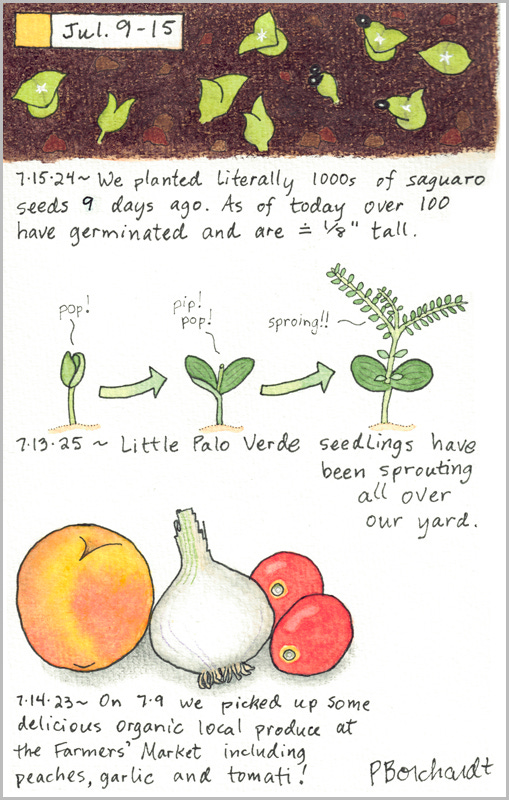 Jul. 9-15
7·15·24~ We planted literally 1000s of saguaro
seeds 9 days ago. As of today over 100
have germinated and are ≐ 1/8" tall.
pop!
pip!
pop!
sproing!!
7·13·25 ~ Little Palo Verde seedlings have
been sprouting
all over
our yard.
7·14·23~ On 7·9 we picked up some
delicious organic local produce at
the Farmers' Market including
peaches, garlic and tomati!
PBorchardt